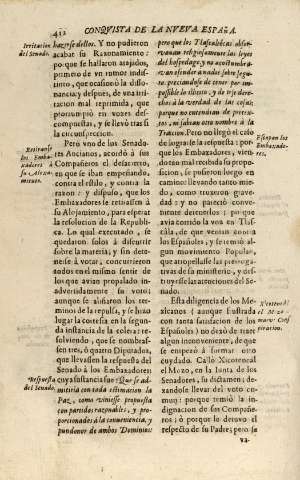 412 CONQUISTA DE LA NUEVA ESPAÑA.
Irritacion
del Senado.
hazerse dellos. Y no pudieron
acabar su Razonamiento:
porque se hallaron atajados,
primero de vn rumor indis-
tinto, que ocasionò la disso-
nancia; y despues, de vna irri-
tacion mal reprimida, que
prorrumpiò en vozes des-
compuestas, y se llevò tras sì
la circunspeccion.
Retiranse
los Emba-
xadores à
su Aloxa-
miento.
Pero vno de los Senado-
res Ancianos, acordò à sus
Compañeros el desacierto,
en que se iban empeñando,
contra el estilo, y contra la
razon: y dispuso, que los
Embaxadores se retirassen à
su Alojamiento, para esperar
la resolucion de la Republi-
ca. Lo qual executado, se
quedaron solos à discurrir
sobre la materia; y sin dete-
nerse à votar, concurrieron
todos en el mismo sentir de
los que avian propalado in-
advertidamente su voto;
aunque se aliñaron los ter-
minos de la repulsa, y se hizo
lugar la cortesia en la segun-
da instancia de la colera: re-
solviendo, que se nombras-
sen tres, ò quatro Diputados,
que llevassen la respuesta del
Senado à los Embaxadores;
Respuesta
del Senado.
cuya sustancia fue: Que se ad-
mitiria con toda estimacion la
Paz, como viniesse propuesta
con partidos razonables, y pro-
porcionados à la conveniencia, y
pundonor de ambos Dominios:
pero que los Tlascaltecas obser-
vavan religiosamente las leyes
del hospedage, y no acostumbra-
van ofender à nadie sobre segu-
ro: preciandose de tener por im-
possible lo ilicito, y de irse dere-
chos à la verdad de las cosas;
porque no entendian de pretex-
tos, ni sabian otro nombre à la
Traicion. Pero no llegò el caso
Escapan los
Embaxado-
res.
de lograrse la respuesta: por-
que los Embaxadores, vien-
do tan mal recibida su propo-
sicion, se pusieron luego en
camino: llevando tanto mie-
do, como truxeron grave-
dad: y no pareciò conve-
niente detenerlos: por que
avia corrido la voz en Tlas-
cála, de que venian contra
los Españoles, y se temiò al-
gun movimiento Popular,
que atropellasse las prerroga-
tivas de su ministerio, y des-
truyesse las atenciones del Se-
nado.
Esta diligencia de los Me-
xicanos (aunque frustrada
con tanta satisfacion de los
Españoles) no dexò de traer
algun inconveniente, de que
se empezò à formar otro
cuydado. Callò Xicotencal
el Mozo, en la Iunta de los
Senadores, su dictamen; de-
xandose llevar del voto co-
mun: porque temiò la in-
dignacion de sus Compañe-
ros; ò porque le detuvo el
respecto de su Padre; pero se
va-